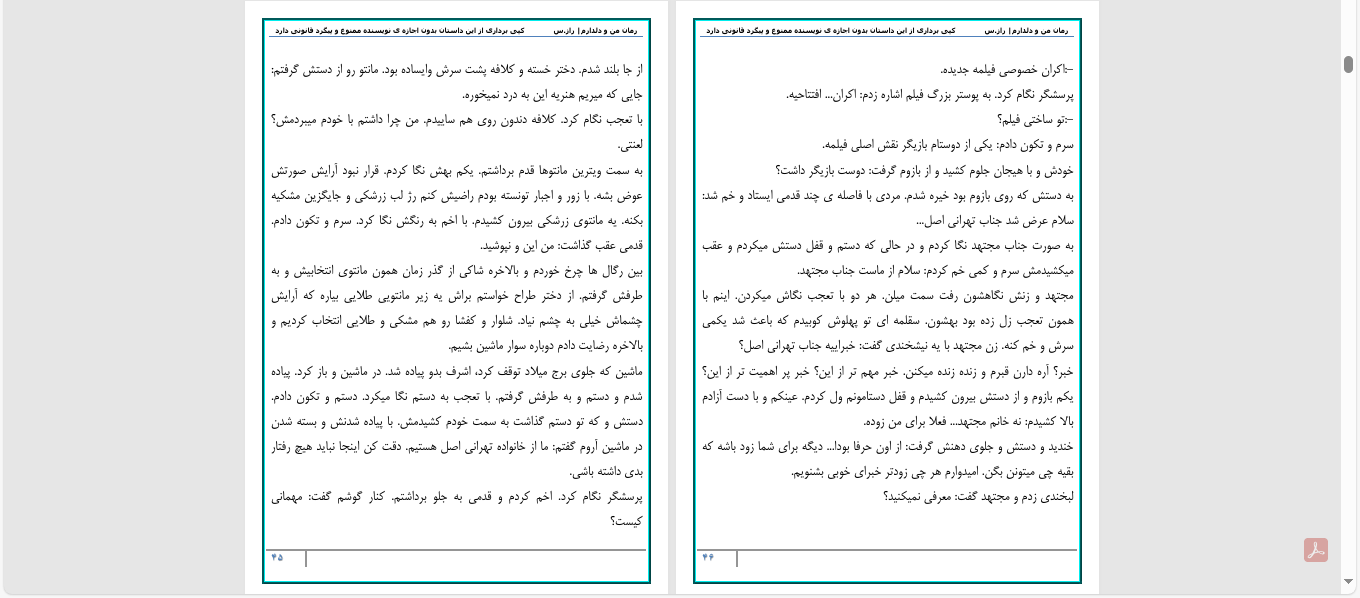 رمان من و دلدارم| راز.س کپی برداری از این داستان بدون اجازه ی نویسنده ممنوع و پیگرد قانونی دارد
از جا بلند شدم. دختر خسته و کلافه پشت سرش وایساده بود. مانتو رو از دستش گرفتم:
جایی که میریم هنریه این به درد نمیخوره.
با تعجب نگام کرد. کلافه دندون روی هم ساییدم. من چرا داشتم با خودم میبردمش؟
لعنتی.
به سمت ویترین مانتوها قدم برداشتم. یکم بهش نگا کردم. قرار نبود آرایش صورتش
عوض بشه. با زور و اجبار تونسته بودم راضیش کنم رژ لب زرشکی و جایگزین مشکیه
بکنه. یه مانتوی زرشکی بیرون کشیدم. با اخم به رنگش نگا کرد. سرم و تکون دادم.
قدمی عقب گذاشت: من این و نپوشید.
بین رگال ها چرخ خوردم و بالاخره شاکی از گذر زمان همون مانتوی انتخابیش و به
طرفش گرفتم. از دختر طراح خواستم براش یه زیر مانتویی طلایی بیاره که آرایش
چشماش خیلی به چشم نیاد. شلوار و کفشا رو هم مشکی و طلایی انتخاب کردیم و
بالاخره رضایت دادم دوباره سوار ماشین بشیم.
ماشین که جلوی برج میلاد توقف کرد، اشرف بدو پیاده شد. در ماشین و باز کرد. پیاده
شدم و دستم و به طرفش گرفتم. با تعجب به دستم نگا میکرد. دستم و تکون دادم.
دستش و که تو دستم گذاشت به سمت خودم کشیدمش. با پیاده شدنش و بسته شدن
در ماشین آروم گفتم: ما از خانواده تهرانی اصل هستیم. دقت کن اینجا نباید هیچ رفتار
بدی داشته باشی.
پرسشگر نگام کرد. اخم کردم و قدمی به جلو برداشتم. کنار گوشم گفت: مهمانی
کیست؟
۴۵
رمان من و دلدارم| راز.س کپی برداری از این داستان بدون اجازه ی نویسنده ممنوع و پیگرد قانونی دارد
-:اکران خصوصی فیلمه جدیده.
پرسشگر نگام کرد. به پوستر بزرگ فیلم اشاره زدم: اکران... افتتاحیه.
-:تو ساختی فیلم؟
سرم و تکون دادم: یکی از دوستام بازیگر نقش اصلی فیلمه.
خودش و با هیجان جلوم کشید و از بازوم گرفت: دوست بازیگر داشت؟
به دستش که روی بازوم بود خیره شدم. مردی با فاصله ی چند قدمی ایستاد و خم شد:
سلام عرض شد جناب تهرانی اصل...
به صورت جناب مجتهد نگا کردم و در حالی که دستم و قفل دستش میکردم و عقب
میکشیدمش سرم و کمی خم کردم: سلام از ماست جناب مجتهد.
مجتهد و زنش نگاهشون رفت سمت میلن. هر دو با تعجب نگاش میکردن. اینم با
همون تعجب زل زده بود بهشون. سقلمه ای تو پهلوش کوبیدم که باعث شد یکمی
سرش و خم کنه. زن مجتهد با یه نیشخندی گفت: خبراییه جناب تهرانی اصل؟
خبر؟ آره دارن قبرم و زنده زنده میکنن. خبر مهم تر از این؟ خبر پر اهمیت تر از این؟
یکم بازوم و از دستش بیرون کشیدم و قفل دستامونم ول کردم. عینکم و با دست آزادم
بالا کشیدم: نه خانم مجتهد... فعلا برای من زوده.
خندید و دستش و جلوی دهنش گرفت: از اون حرفا بودا... دیگه برای شما زود باشه که
بقیه چی میتونن بگن. امیدوارم هر چی زودتر خبرای خوبی بشنویم.
لبخندی زدم و مجتهد گفت: معرفی نمیکنید؟
۴۴